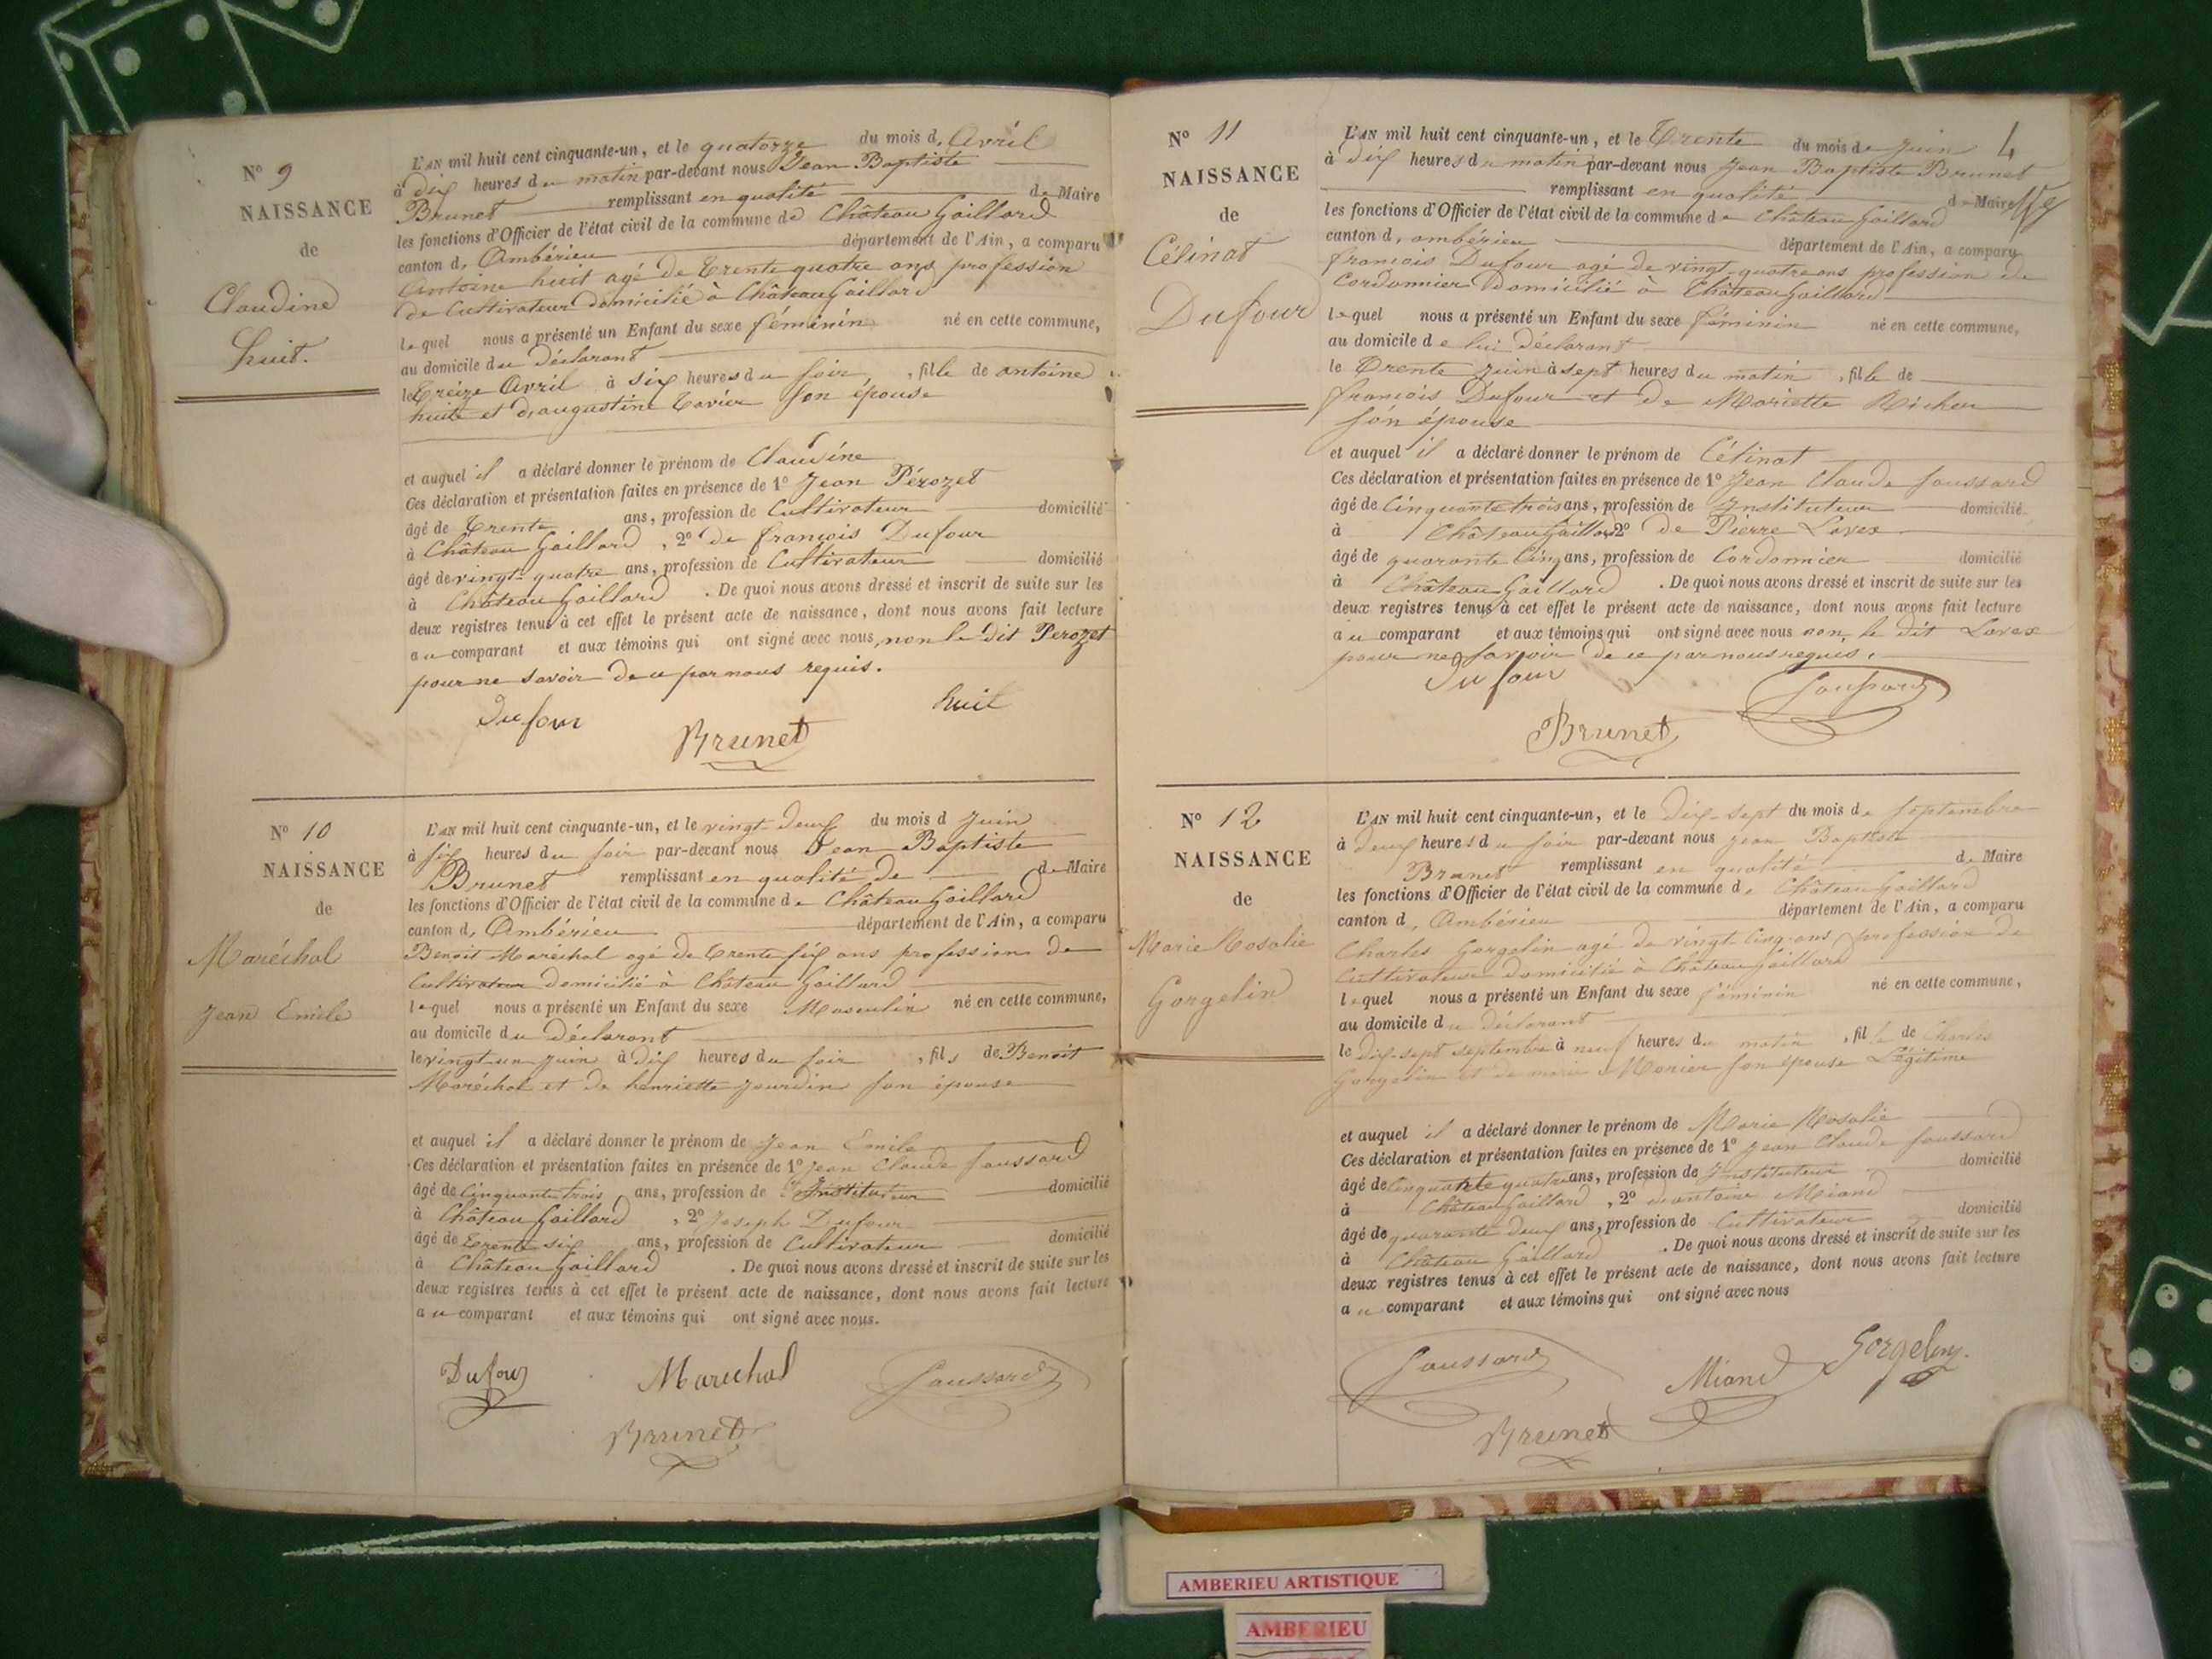 N° 9
NAISSANCE
de
Claudine
huit.
L'AN mil huit cent cinquante-un, et le quatorze du mois d, Avril
à dix heures du matin par-devant nous Jean Baptiste
Brunet remplissant en qualité de Maire
les fonctions d'Officier de l'état civil de la commune de Château Gaillard
canton d, Ambérieu département de l'Ain, a comparu
Antoine huit agé de trente quatre ans profession
de Cultivateur domicilié à Château Gaillard
lequel nous a présenté un Enfant du sexe féminin né en cette commune,
au domicile du déclarant
le treize Avril à six heures du soir, fille de antoine
huit et d, augustine Tavier son épouse
et auquel il a déclaré donner le prénom de Claudine
Ces déclaration et présentation faites en présence de 1° Jean Pérozet
âgé de trente ans, profession de Cultivateur domicilié
à Château Gaillard, 2° de francois Dufour
âgé de vingt-quatre ans, profession de Cultivateur domicilié
à Château Gaillard. De quoi nous avons dressé et inscrit de suite sur les
deux registres tenus à cet effet le présent acte de naissance, dont nous avons fait lecture
au comparant et aux témoins qui ont signé avec nous, non le dit Perozet
pour ne savoir de ce par nous requis.
Dufour huit
Brunet
N° 10
NAISSANCE
de
Maréchal
Jean Emile
L'AN mil huit cent cinquante-un, et le vingt-deux du mois d Juin
à six heures du soir par-devant nous Jean Baptiste
Brunet remplissant en qualité de de Maire
les fonctions d'Officier de l'état civil de la commune de Château Gaillard
canton d, Ambérieu département de l'Ain, a comparu
Benoit Maréchal agé de trente six ans profession de
Cultivateur domicilié à Château Gaillard
lequel nous a présenté un Enfant du sexe Masculin né en cette commune,
au domicile du déclarant
le vingt-un Juin à dix heures du soir, fils de Benoit
Maréchal et de henriette Jourdin son épouse
et auquel il a déclaré donner le prénom de Jean Emile
Ces déclaration et présentation faites en présence de 1° Jean Claude Joussard
âgé de Cinquante trois ans, profession de Instituteur domicilié
à Château Gaillard, 2° Joseph Dufour
âgé de trente-six ans, profession de Cultivateur domicilié
à Château Gaillard. De quoi nous avons dressé et inscrit de suite sur les
deux registres tenus à cet effet le présent acte de naissance, dont nous avons fait lecture
au comparant et aux témoins qui ont signé avec nous.
Dufour Marechal Joussard
Brunet
4
N° 11
NAISSANCE
de
Célinat
Dufour
L'AN mil huit cent cinquante-un, et le Trente du mois de Juin
à dix heures du matin par-devant nous Jean Baptiste Brunet
remplissant en qualité de Maire
les fonctions d'Officier de l'état civil de la commune de Château Gaillard
canton d, ambérieu département de l'Ain, a comparu
francois Dufour agé de vingt-quatre ans profession de
Cordonnier domicilié à Château Gaillard
lequel nous a présenté un Enfant du sexe féminin né en cette commune,
au domicile de lui déclarant
le Trente Juin à sept heures du matin, fille de
francois Dufour et de Mariette
son épouse
et auquel il a déclaré donner le prénom de Célinat
Ces déclaration et présentation faites en présence de 1° Jean Claude Joussard
âgé de Cinquante trois ans, profession de Instituteur domicilié
à Château Gaillard 2° de Pierre Lavex
âgé de quarante Cinq ans, profession de Cordonnier domicilié
à Château Gaillard. De quoi nous avons dressé et inscrit de suite sur les
deux registres tenus à cet effet le présent acte de naissance, dont nous avons fait lecture
au comparant et aux témoins qui ont signé avec nous non, le dit Lavex
pour ne savoir de ce par nous requis.
Dufour Joussard
Brunet
N° 12
NAISSANCE
de
Marie Rosalie
Gorgelin
L'AN mil huit cent cinquante-un, et le dix-sept du mois de Septembre
à deux heures du soir par-devant nous Jean Baptiste
Brunet remplissant en qualité de Maire
les fonctions d'Officier de l'état civil de la commune d, Château Gaillard
canton d, Ambérieu département de l'Ain, a comparu
Charles Gorgelin agé de vingt Cinq ans profession de
Cultivateur domicilié à Château Gaillard
lequel nous a présenté un Enfant du sexe féminin né en cette commune,
au domicile du déclarant
le dix-sept septembre à neuf heures du matin, fille de Charles
Gorgelin et de marie Morier son épouse Légitime
et auquel il a déclaré donner le prénom de Marie Rosalie
Ces déclaration et présentation faites en présence de 1° Jean Claude Joussard
âgé de Cinquante quatre ans, profession de Instituteur domicilié
à Château Gaillard, 2° antoine Miand
âgé de quarante deux ans, profession de Cultivateur domicilié
à Château Gaillard. De quoi nous avons dressé et inscrit de suite sur les
deux registres tenus à cet effet le présent acte de naissance, dont nous avons fait lecture
au comparant et aux témoins qui ont signé avec nous
Joussard Miand Gorgelin
Brunet
AMBERIEU ARTISTIQUE
AMBERIEU